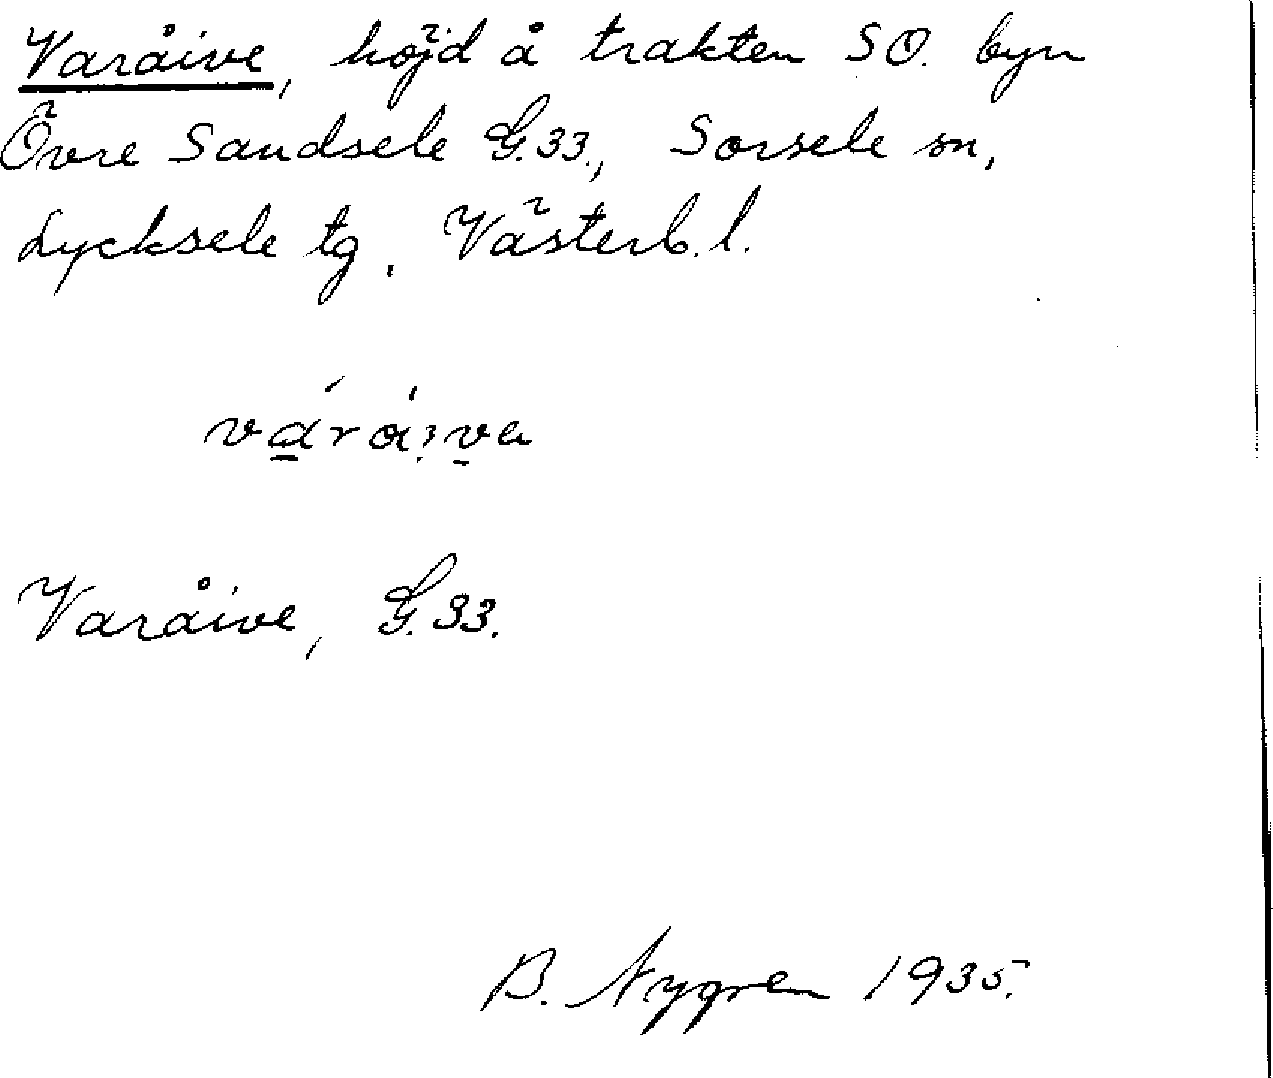 Varåive, höjd å trakten SO. byn
Övre Sandsele G.33., Sorsele sn,
Lycksele tg. Västerb. l.
várá:i̯va
Varåive, G.33.
B. Nygren 1935.